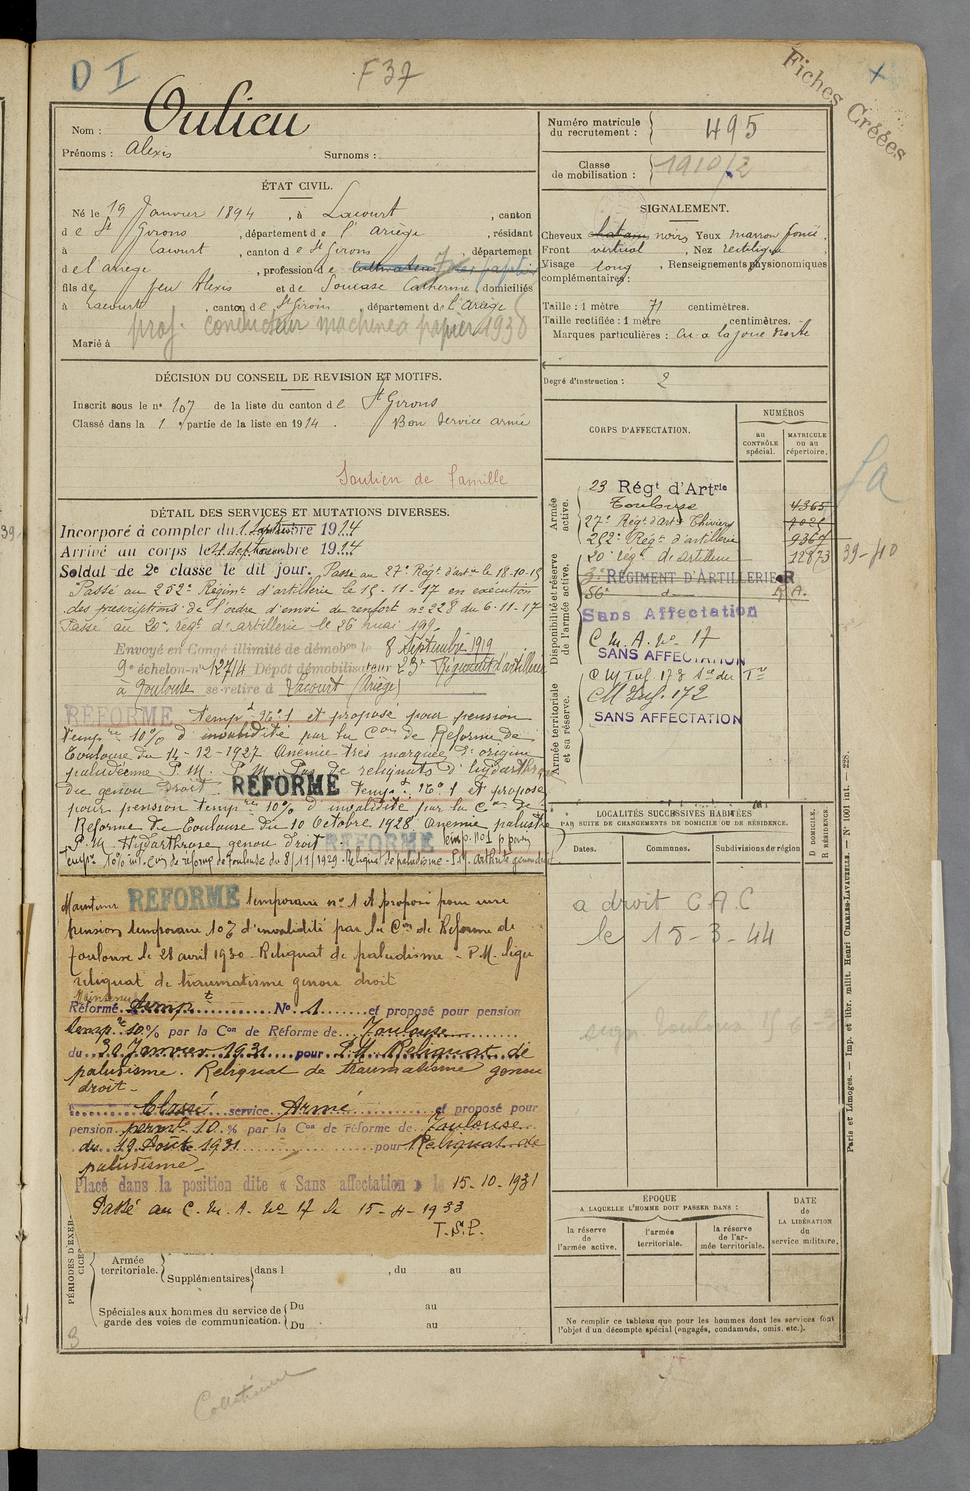 D I
F37
Fiches Créées
Nom : Oulieu
Prénoms : Alexis Surnoms :
Numéro matricule du recrutement : 495
Classe de mobilisation : 1910/2
ÉTAT CIVIL.
Né le 19 Janvier 1894, à Lacourt, canton
de St Girons, département de l'Ariège, résidant
à Lacourt, canton de St Girons, département
de l'ariège, profession de Cultivateur
fils de feu Alexis et de Soucasse Catherine domiciliés
à Lacourt, canton de St Girons, département de l'Ariège
prof. conducteur machine à papier 1938
Marié à
SIGNALEMENT.
Cheveux chatain noirs, Yeux marron foncé.
Front vertical, Nez rectiligne
Visage long, Renseignements physionomiques
complémentaires :
Taille : 1 mètre 71 centimètres.
Taille rectifiée : 1 mètre centimètres.
Marques particulières : Cic à la joue droite
Degré d'instruction : 2
DÉCISION DU CONSEIL DE REVISION ET MOTIFS.
Inscrit sous le n° 107 de la liste du canton de St Girons
Classé dans la 1e partie de la liste en 1914. Bon service armé
Soutien de famille
DÉTAIL DES SERVICES ET MUTATIONS DIVERSES.
Incorporé à compter du 1 Septembre 1914
Arrivé au corps le 4 Septembre 1914
Soldat de 2e classe le dit jour. Passé au 27e Régt d'artie le 18-10-15
Passé au 252e Régimt d'artillerie le 15-11-17 en exécution
des prescriptions de l'ordre d'envoi de renfort n° 228 du 6-11-17
Passé au 20e régt d'artillerie le 26 mai 191
Envoyé en Congé illimité de démobon le 8 Septembre 1919
9e échelon n° 12714 Dépôt démobilisateur 23e Régiment d'artillerie
à Toulouse se retire à Lacourt (Ariège)
RÉFORMÉ temp. n° 1 et proposé pour pension
tempre 10% d'invalidité par la Con de Réforme de
Toulouse du 14-12-1927 Anémie très marquée d'origine
paludéenne P.M. P.M. Pas de reliquats d'hydarthrose
du genou droit. RÉFORMÉ temp. n° 1 et proposé
pour pension tempre 10% d'invalidité par la Con de
Réforme de Toulouse du 10 Octobre 1928 Anémie palustre
P.M. Hydarthrose genou droit RÉFORMÉ temp. no 1 p pon
tempre 10% inv. Con de réforme de Toulouse du 8/11/1929 - Reliquat de paludisme - P.M. arthrite genou droit
Maintenu RÉFORMÉ temporaire n° 1 et proposé pour une
pension temporaire 10% d'invalidité par la Con de Réforme de
Toulouse le 28 avril 1930 - Reliquat de paludisme - P.M. léger
reliquat de traumatisme genou droit
Maintenu
Réformé temp. N° 1 et proposé pour pension
tempre 10% par la Con de Réforme de Toulouse
du 30 Janvier 1931 pour P.M. Reliquat de
paludisme. Reliquat de traumatisme genou
droit -
Classé service Armé et proposé pour
pension permte 10 % par la Con de réforme de Toulouse
du 19 Août 1931 pour Reliquat de
paludisme -
Placé dans la position dite « Sans affectation » le 15-10-1931
Passé au C.M.A. N° 17 le 15-4-1933
T.S.P.
PÉRIODES D'EXERCICES
Armée territoriale. Supplémentaires dans l , du au
Spéciales aux hommes du service de garde des voies de communication. Du au
Du au
3
CORPS D'AFFECTATION.
NUMÉROS
au CONTRÔLE spécial.
MATRICULE ou au répertoire.
Armée active.
23 Régt d'Artrie
Toulouse 4365
27e Régt d'art. Thiviers
252e Régt d'artillerie 9367
20e régt d'artillerie 12873
39-40
Disponibilité et réserve de l'armée active.
3e RÉGIMENT D'ARTILLERIE R
56e d° R.A.
Sans Affectation
C.M.A. n° 17
SANS AFFECTATION
Armée territoriale et sa réserve.
SANS AFFECTATION
LOCALITÉS SUCCESSIVES HABITÉES
PAR SUITE DE CHANGEMENTS DE DOMICILE OU DE RÉSIDENCE.
Dates. Communes. Subdivisions de région
D DOMICILE.
R RÉSIDENCE.
a droit C A C
le 15-3-44
ÉPOQUE
A LAQUELLE L'HOMME DOIT PASSER DANS :
la réserve de l'armée active.
l'armée territoriale.
la réserve de l'armée territoriale.
DATE de LA LIBÉRATION du service militaire.
Ne remplir ce tableau que pour les hommes dont les services font
l'objet d'un décompte spécial (engagés, condamnés, omis. etc.).
Paris et Limoges. — Imp. et libr. milit. Henri CHARLES-LAVAUZELLE. — N° 1001 int. — 228.